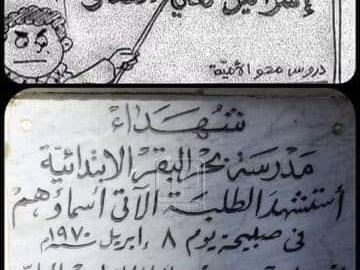 إسرائيل هي
دروس محو الأمية
شهداء
مدرسة بحر البقر الابتدائية
استشهد الطلبة الآتى أسماؤهم
فى صبيحة يوم ٨ إبريل ١٩٧٠م